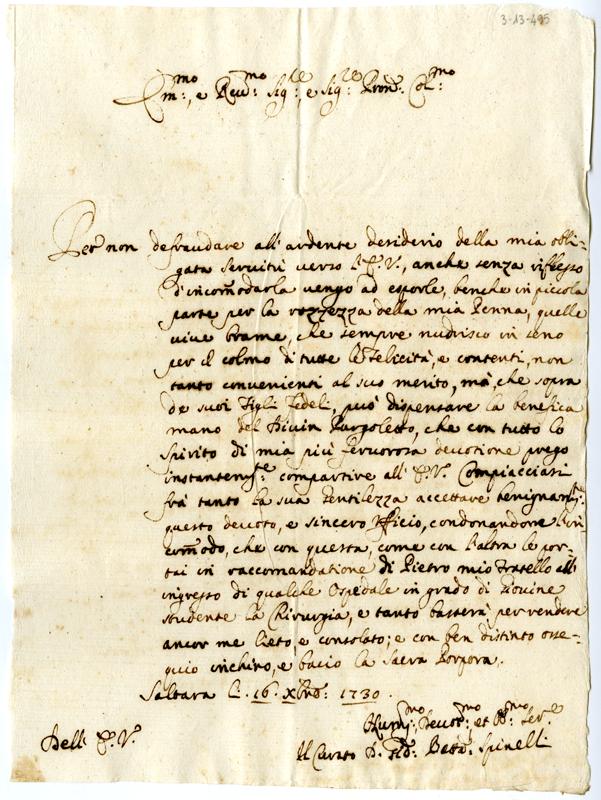 3-13-495
Em:mo, e Reu:mo Sig:re, e Sig:re Pron: Col:mo
Per non defraudare all'ardente desiderio della mia obbli-
gata seruitù uerso l'E.V., anche senza riflesso
d'incom̃odarla uengo ad esporle, benche in piccola
parte per la rozzezza della mia Penna, quelle
uiue brame, che sempre nudrisco in seno
per il colmo di tutte le felicità, e contenti, non
tanto conuenienti al suo merito, mà, che sopra
de suoi Figli Fedeli, può dispensare la benefica
mano del Diuin Pargoletto, che con tutto lo
spirito di mia più feruorosa deuotione prego
instantem:te compartire all'E.V. Compiacciasi
frà tanto la sua Gentilezza accettare benignam:te
questo deuoto, e sincero Officio, condonandone l'in
com̃odo, che con questa, come con l'altra le por-
tai in raccomandatione di Pietro mio Fratello all'
ingresso di qualche Ospedale in grado di Giouine
studente la Chirurgia, e tanto basterà per rendere
ancor me lieto, e consolato; e con ben distinto osse-
quio inchino, e bacio la Sacra Porpora.
Saltara li 16. Xbre: 1730.
Dell'E.V.
Hum:mo, Deuot:mo, et Obb:mo Ser:e
Il Curato D. Batta: Spinelli